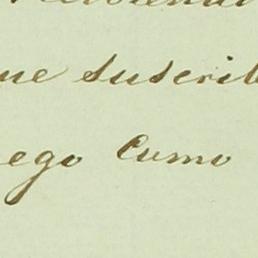 ue suscrib
ego Cumo